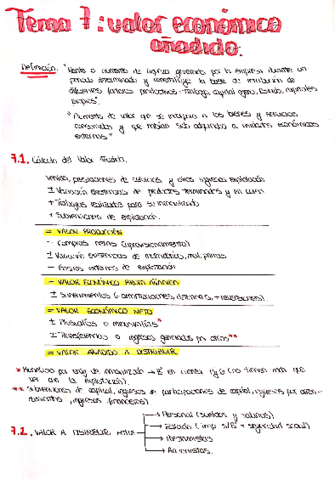 Tema 7: valor económico
añadido.
Definición: "Renta o aumento de riqueza generada por la empresa durante un
periodo determinado y constituye la base de distribución de
diferentes factores productivos: trabajo, capital ajeno, Estado, capitales
propios".
"Aumento de valor que se incorpora a los bienes y servicios
consumidos y que habían sido adquiridos a unidades económicas
externas."
7.1. Cálculo del Valor Añadido.
Ventas, prestaciones de servicios y otros ingresos explotación
± Variación existencias de productos terminados y en curso
+ Trabajos realizados para su inmovilizado
+ Subvenciones de explotación.
= VALOR PRODUCCIÓN
- Compras netas (aprovisionamiento)
± Variación existencias de mercaderías, mat. primas
- Gastos externos de explotación
= VALOR ECONÓMICO BRUTO
± Suministros (+ amortizaciones)
= VALOR ECONÓMICO NETO
± Plusvalías o minusvalías*
± Transferencias o ingresos generados por otros**
= VALOR AÑADIDO A DISTRIBUIR
* Beneficio por venta de inmovilizado → Bº en cuenta PyG (no tienen nada que
ver con la explotación).
** Subvenciones de capital, ingresos de participaciones de capital, ingresos por
7.2. VALOR A DISTRIBUIR ENTRE
→ Personal (sueldos y salarios).
→ Estado (imp. s/Bº + seguridad social)
→ Prestamistas
→ Accionistas.